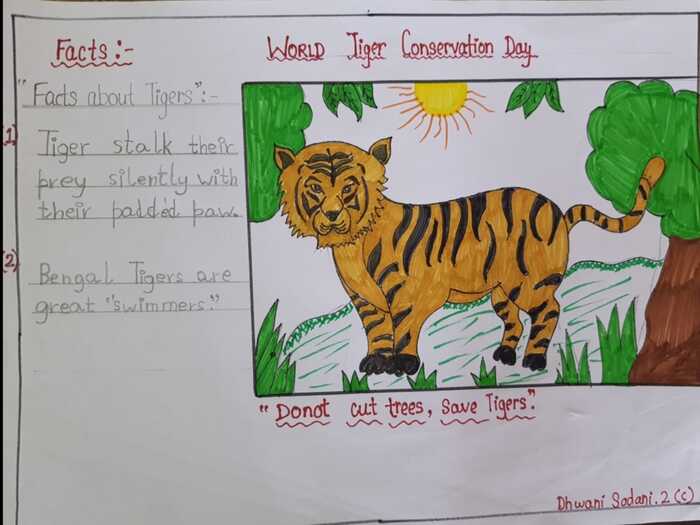 Facts:-
World Tiger Conservation Day
"Facts about Tigers":-
1) Tiger stalk their
prey silently with
their padded paw.
2) Bengal Tigers are
great "swimmers."
"Donot cut trees, save Tigers".
Dhwani Sodani. 2 (c)